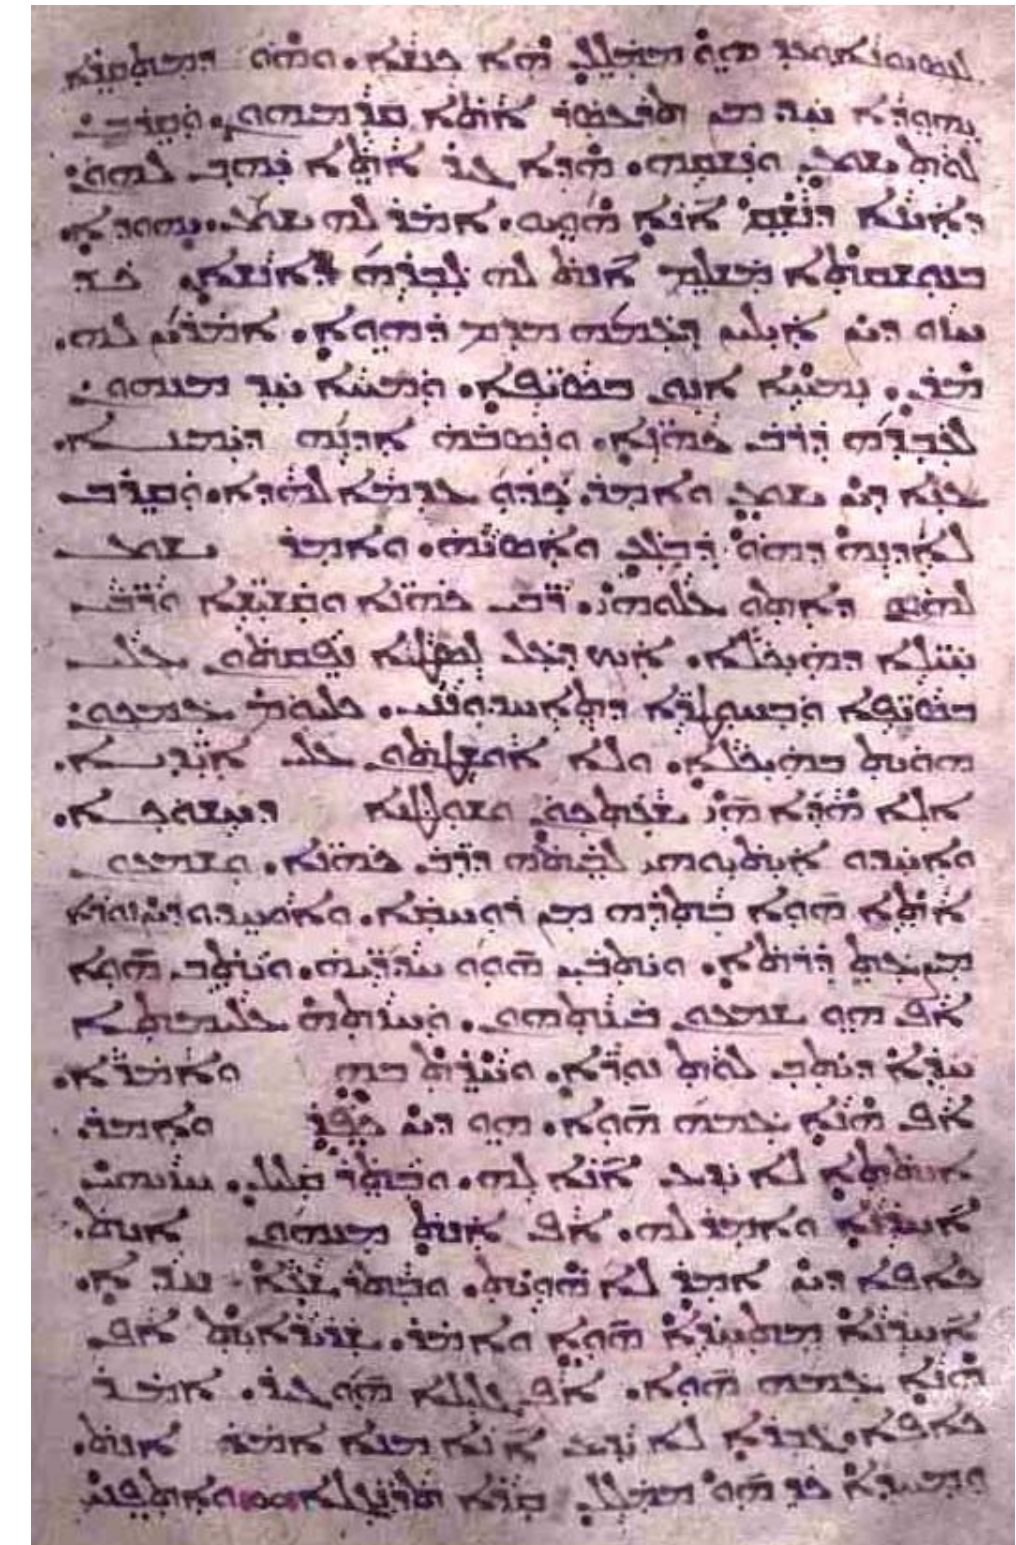 ܥܕ ܗܘ ܡܡܠܠ ܗܐ ܟܢܫܐ. ܘܗܘ ܕܡܬܩܪܐ
ܝܗܘܕܐ ܚܕ ܡܢ ܬܪܥܣܪ ܐܬܐ ܩܕܡܝܗܘܢ. ܘܩܪܒ
ܠܘܬ ܝܫܘܥ ܘܢܫܩܗ. ܗܕܐ ܓܝܪ ܐܬܐ ܝܗܒ ܠܗܘܢ.
ܕܐܝܢܐ ܕܢܫܩ ܐܢܐ ܗܘܝܘ. ܐܡܪ ܠܗ ܝܫܘܥ. ܝܗܘܕܐ.
ܒܢܘܫܩܬܐ ܡܫܠܡ ܐܢܬ ܠܗ ܠܒܪܗ ܕܐܢܫܐ. ܟܕ
ܚܙܘ ܕܝܢ ܐܝܠܝܢ ܕܥܡܗ ܡܕܡ ܕܗܘܐ. ܐܡܪܝܢ ܠܗ.
ܡܪܢ. ܢܡܚܐ ܐܢܘܢ ܒܣܝܦܐ. ܘܡܚܐ ܚܕ ܡܢܗܘܢ
ܠܥܒܕܗ ܕܪܒ ܟܗܢܐ. ܘܢܣܒܗ ܐܕܢܗ ܕܝܡܝܢܐ.
ܥܢܐ ܕܝܢ ܝܫܘܥ ܘܐܡܪ. ܟܕܘ ܥܕܡܐ ܠܗܕܐ. ܘܩܪܒ
ܠܐܕܢܗ ܕܗܘ ܕܒܠܥ ܘܐܣܝܗ. ܘܐܡܪ ܝܫܘܥ
ܠܗܢܘܢ ܕܐܬܘ ܥܠܘܗܝ. ܪܒܝ ܟܗܢܐ ܘܩܫܝܫܐ ܘܪܒܝ
ܚܝܠܐ ܕܗܝܟܠܐ. ܐܝܟ ܕܥܠ ܠܣܛܝܐ ܢܦܩܬܘܢ ܥܠܝ
ܒܣܝܦܐ ܘܒܚܘܛܪܐ ܕܬܐܚܕܘܢܢܝ. ܟܠܝܘܡ ܥܡܟܘܢ
ܗܘܝܬ ܒܗܝܟܠܐ. ܘܠܐ ܐܘܫܛܬܘܢ ܥܠܝ ܐܝܕܝܐ.
ܐܠܐ ܗܕܐ ܗܝ ܫܥܬܟܘܢ ܘܫܘܠܛܢܐ ܕܚܫܘܟܐ.
ܘܐܚܕܘ ܐܝܬܝܘܗܝ ܠܒܝܬܗ ܕܪܒ ܟܗܢܐ. ܘܫܡܥܘܢ
ܐܬܐ ܗܘܐ ܒܬܪܗ ܡܢ ܪܘܚܩܐ. ܘܐܘܚܕܘ ܕܝܢ ܢܘܪܐ
ܡܨܥܬ ܕܪܬܐ. ܘܝܬܒܝܢ ܗܘܘ ܚܕܪܝܗ. ܘܝܬܒ ܗܘܐ
ܐܦ ܗܘ ܫܡܥܘܢ ܒܝܢܬܗܘܢ. ܘܚܙܬܗ ܥܠܝܡܬܐ
ܚܕܐ ܕܝܬܒ ܠܘܬ ܢܘܪܐ. ܘܚܪܬ ܒܗ ܘܐܡܪܐ.
ܐܦ ܗܢܐ ܥܡܗ ܗܘܐ. ܗܘ ܕܝܢ ܟܦܪ ܘܐܡܪ.
ܐܢܬܬܐ ܠܐ ܝܕܥ ܐܢܐ ܠܗ. ܘܒܬܪ ܩܠܝܠ. ܚܙܝܗܝ
ܐܚܪܢܐ ܘܐܡܪ ܠܗ. ܐܦ ܐܢܬ ܡܢܗܘܢ ܐܢܬ.
ܟܐܦܐ ܕܝܢ ܐܡܪ ܠܐ ܗܘܝܬ. ܘܒܬܪ ܫܥܐ ܚܕܐ.
ܐܚܪܢܐ ܡܬܚܪܐ ܗܘܐ ܘܐܡܪ. ܫܪܝܪܐܝܬ ܐܦ
ܗܢܐ ܥܡܗ ܗܘܐ. ܐܦ ܓܠܝܠܝܐ ܗܘ ܓܝܪ. ܐܡܪ
ܟܐܦܐ. ܓܒܪܐ ܠܐ ܝܕܥ ܐܢܐ ܡܢܐ ܐܡܪ ܐܢܬ.
ܘܡܚܕܐ ܟܕ ܗܘ ܡܡܠܠ ܩܪܐ ܬܪܢܓܠܐ ܘܐܬܦܢܝ